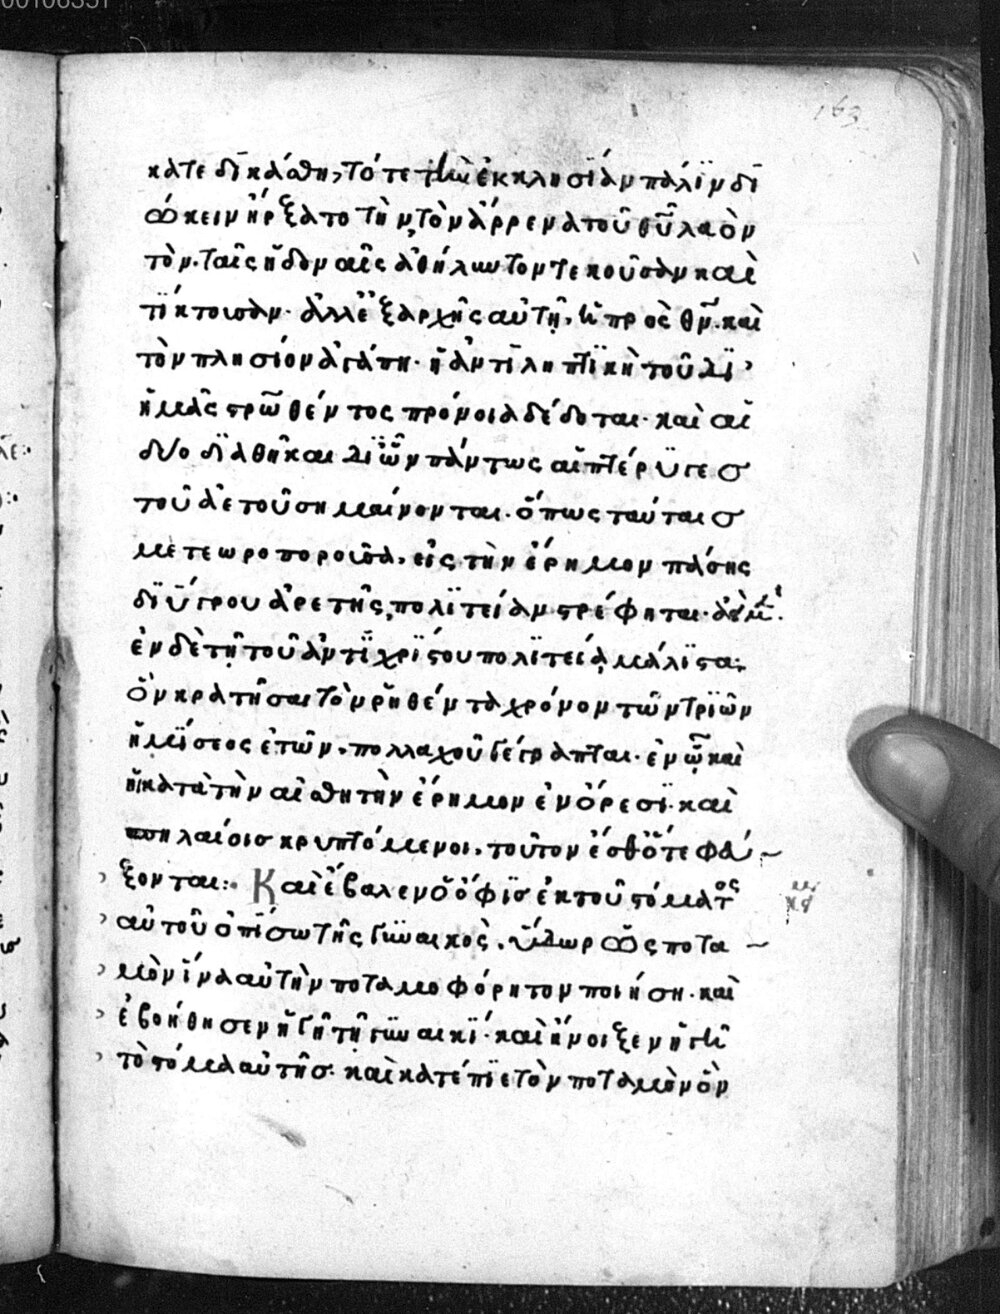 163
κατεδικάσθη, τότε τὴν ἐκκλησίαν πάλιν δι
ώκειν ἤρξατο τὴν τὸν ἄρρενα τοῦ θυ λαὸν
τὸν. ταῖς ἡδοναῖς ἀθήλυντον τεκοῦσαν καὶ
τίκτουσαν. ἀλλ' ἐξαρχῆς αὐτῆ, ἡ πρὸς θν. καὶ
τὸν πλησίον ἀγάπη. ἡ ἀντιληπτικὴ τοῦ δι'
ἡμᾶς στρωθέντος πρόνοια δέδοται. καὶ αἱ
δύο διαθῆκαι δι' ὧν πάντως αἱ πτέρυγες
τοῦ ἀετοῦ σημαίνονται. ὅπως ταύταις
μετεωροποροῦσα, εἰς τὴν ἔρημον πάσης
διύγρου ἀρετῆς, πολιτείαν τρέφηται. ἀεὶ μ.
ἐν δὲ τῇ τοῦ ἀντιχρίστου πολιτείᾳ μάλιστα;
ὃν κρατῆσαι τὸν ῥηθέντα χρόνον τῶν τριῶν
ἥμισεος ἐτῶν, πολλαχοῦ γέγραπται. ἐν ᾧ καὶ
ἡ κατὰ τὴν αἰσθητὴν ἔρημον ἐν ὄρεσι. καὶ
σπηλαίοις κρυπτόμενοι, τοῦτον ἔσθ' ὅτε φεύ
ξονται:. Καὶ ἔβαλεν ὁ ὄφις ἐκ τοῦ στόματος
αὐτοῦ ὀπίσω τῆς γυναικὸς, ὕδωρ ὡς ποτα
μὸν ἵνα αὐτὴν ποταμοφόρητον ποιήση. καὶ
ἐβοήθησεν ἡ γῆ τῇ γυναικί. καὶ ἤνοιξεν ἡ γῆ
τὸ στόμα αὐτῆς. καὶ κατέπιε τὸν ποταμὸν ὃν